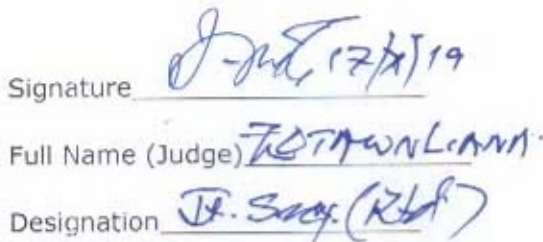 Signature 17/X/19
Full Name (Judge) ZOTAWNLIANA
Designation Jt. Secy. (Rtd)